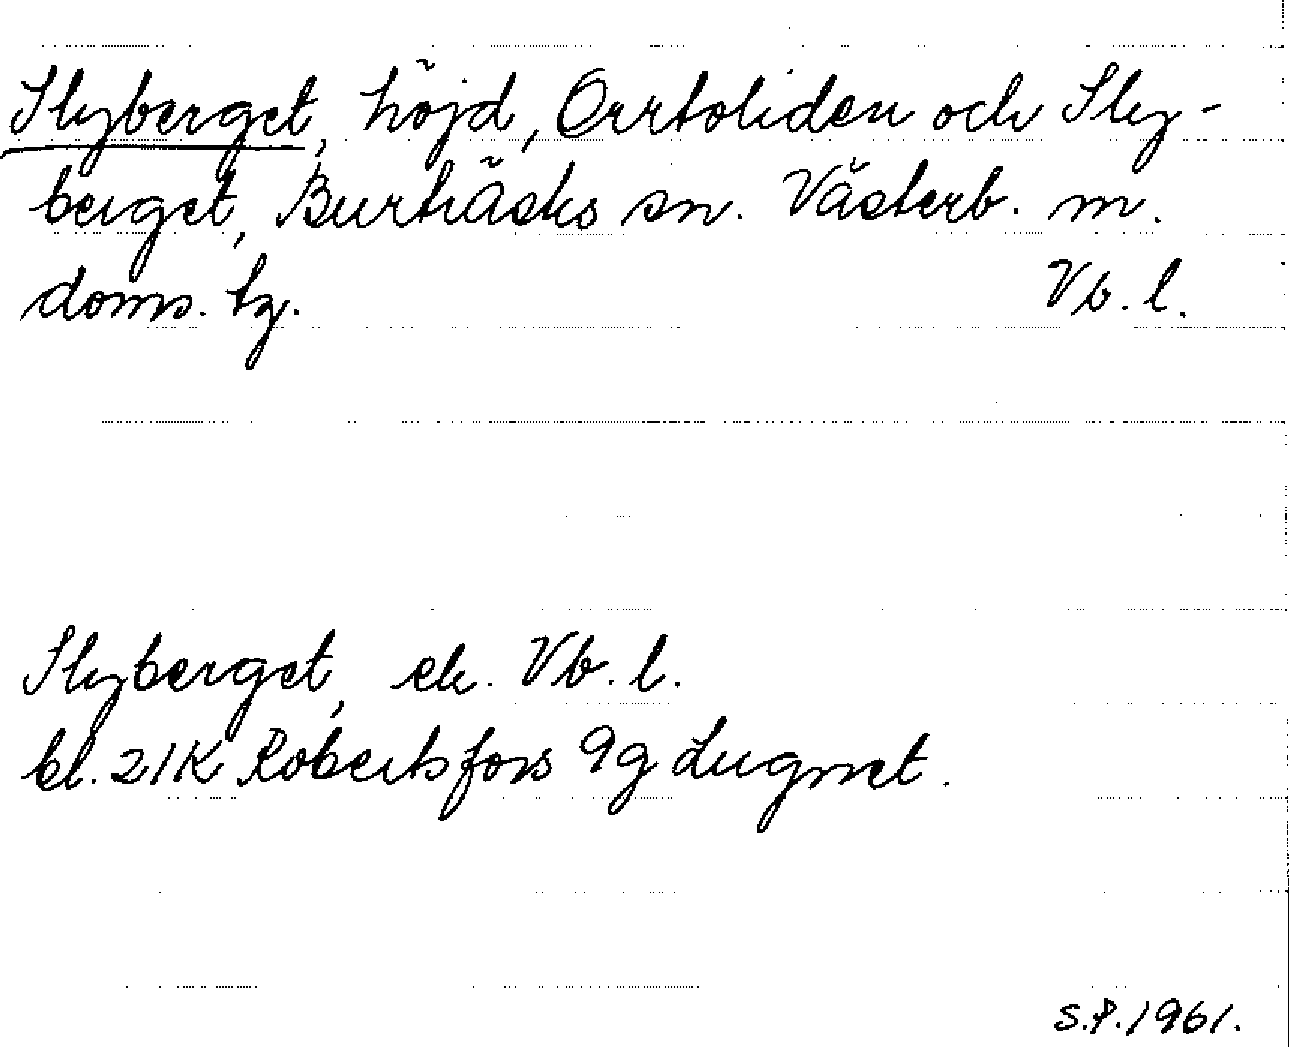 Slyberget, höjd, Orrtoliden och Sly-
berget, Burträsks sn. Västerb. m.
doms. tg. Vb. l.
Slyberget, ek. Vb. l.
bl. 21K Robertsfors 9g Lugnet.
S.P. 1961.